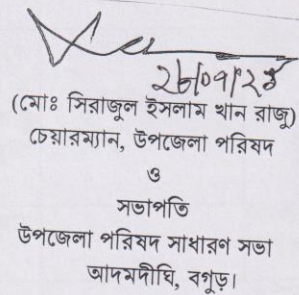 (মোঃ সিরাজুল ইসলাম খান রাজু)
চেয়ারম্যান, উপজেলা পরিষদ
ও
সভাপতি
উপজেলা পরিষদ সাধারণ সভা
আদমদীঘি, বগুড়া।